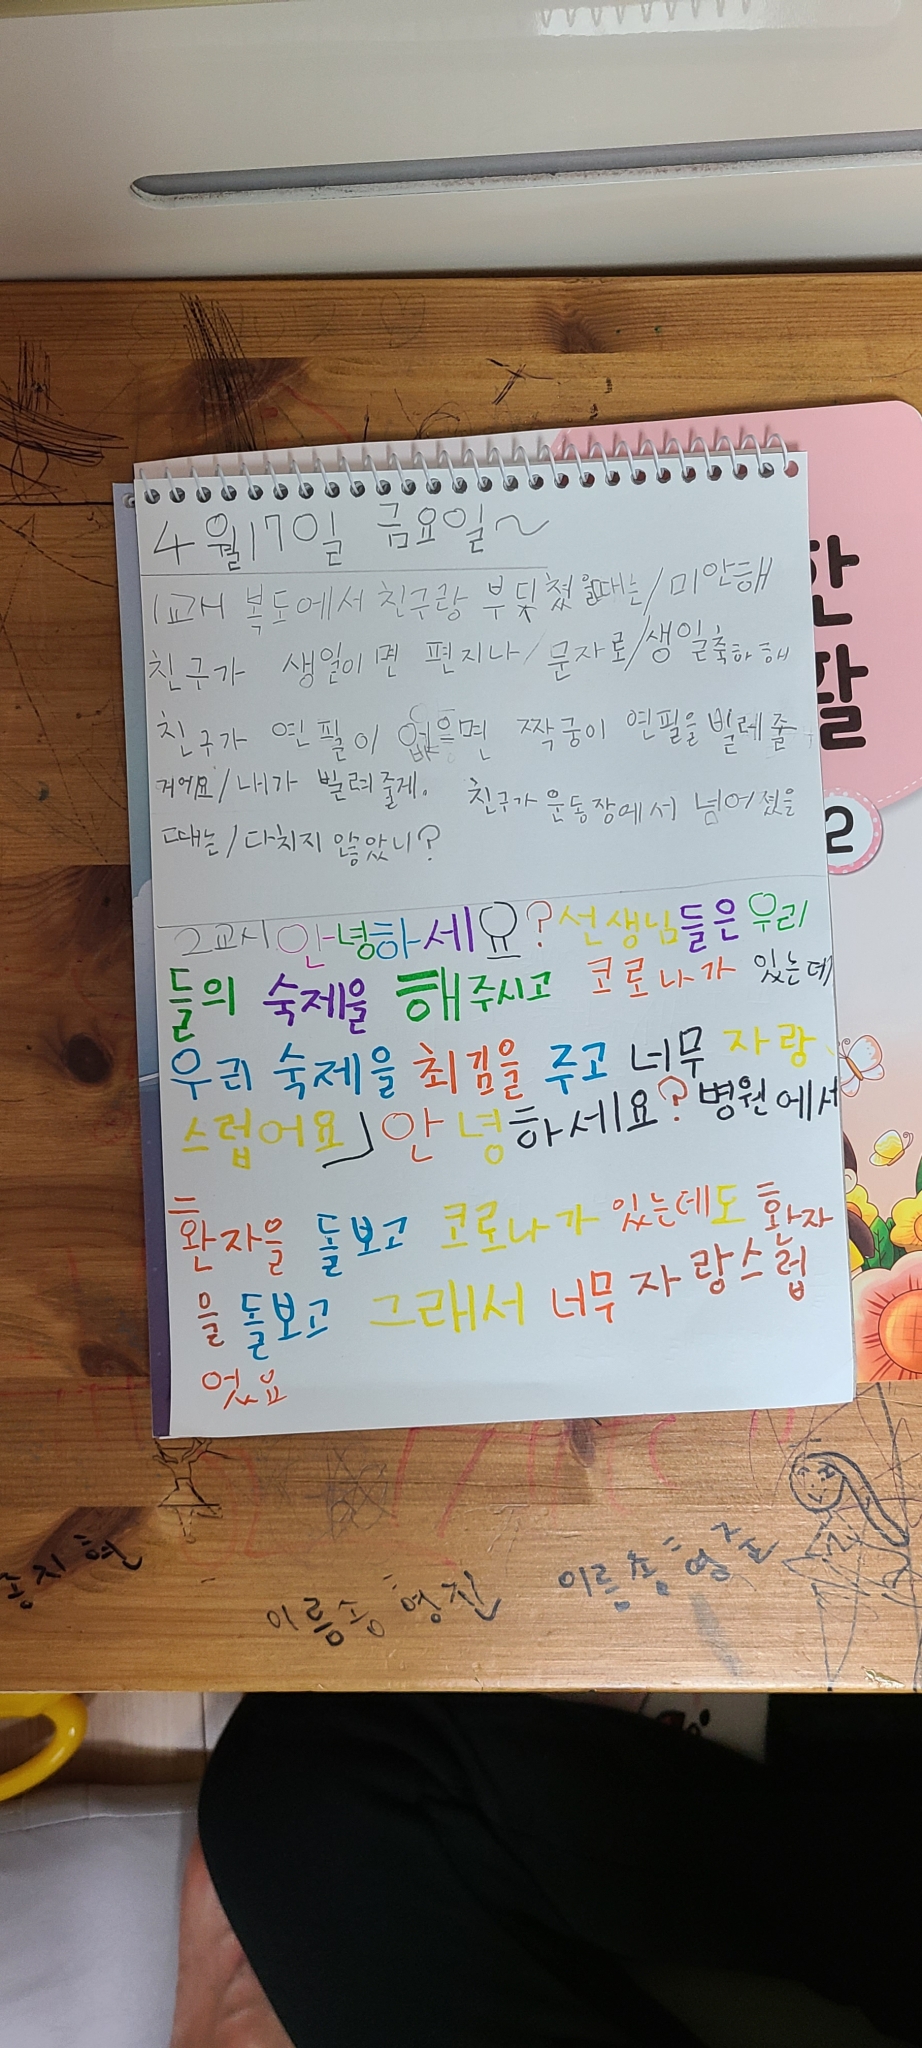 4월17일 금요일~
1교시 복도에서 친구랑 부딫쳤을때는/미안해
친구가 생일이면 편지나/문자로/생일축하해
친구가 연필이 없으면 짝궁이 연필을 빌레줄
거어요/내가 빌려줄게. 친구가 운동장에서 넘어졌을
때는/다치지 않았니?
2교시 안녕하세요?선생님들은 우리
들의 숙제을 해주시고 코로나가 있는데
우리 숙제을 최김을 주고 너무 자랑
스럽어요」안녕하세요?병원에서
환자을 돌보고 코로나가 있는데도 환자
을 돌보고 그래서 너무 자랑스럽
엇요
활
2
송지현
이름송영진
이름송